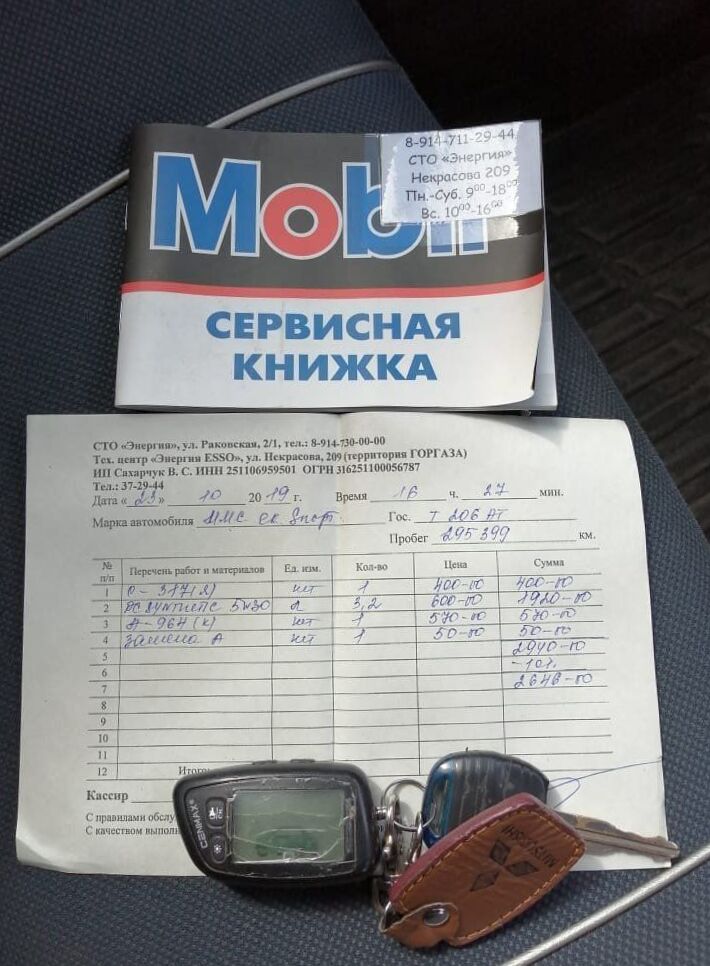 Mobil
8-914-711-29-44
СТО «Энергия»
Некрасова 209
Пн.-Суб. 9⁰⁰-18⁰⁰
Вс. 10⁰⁰-16⁰⁰
СЕРВИСНАЯ
КНИЖКА
СТО «Энергия», ул. Раковская, 2/1, тел.: 8-914-730-00-00
Тех. центр «Энергия ESSO», ул. Некрасова, 209 (территория ГОРГАЗА)
ИП Сахарчук В. С. ИНН 251106959501 ОГРН 316251100056787
Тел.: 37-29-44
Дата «23» 10 2019 г. Время 16 ч. 27 мин.
Марка автомобиля ММС ек Спорт Гос. Т 206 АТ
Пробег 295 399 км.
№ п/п Перечень работ и материалов Ед. изм. Кол-во Цена Сумма
1 С-317(Я) шт 1 400-00 400-00
2 синтетic 5w30 л 3,2 600-00 1920-00
3 А-964 (К) шт 1 570-00 570-00
4 Замена А шт 1 50-00 50-00
5 2940-00
6 -10%
7 2646-00
8
9
10
11
12 Итого
Кассир
С правилами обслу
С качеством выполн
CENMAX
MITSUBISHI